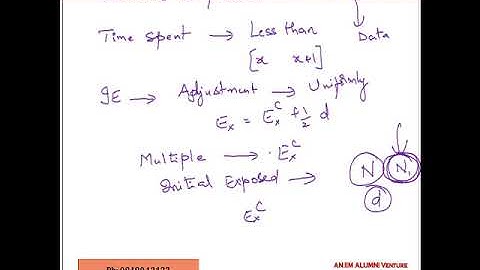 Time spent → Less than Data
[x x+1]
IE → Adjustment → Uniformly
Eₓ = Eₓᶜ + ½ d
Multiple → Eₓᶜ
Initial Exposed → N N₁
d
Eₓᶜ
AN IIM ALUMNI VENTURE